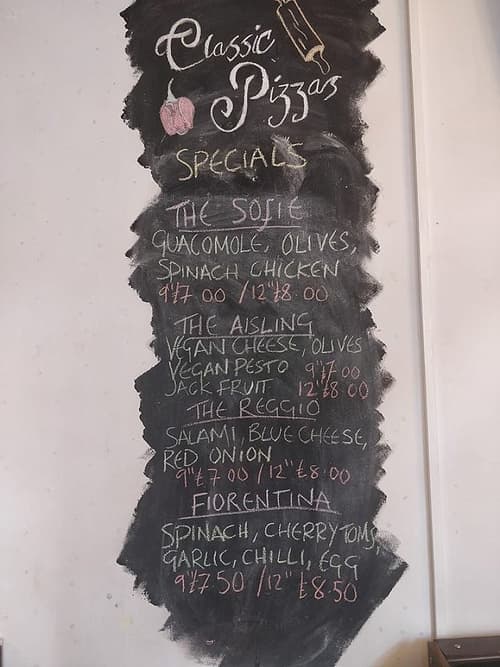 Classic
Pizzas
SPECIALS
THE SOFIE
GUACOMOLE, OLIVES,
SPINACH CHICKEN
9" £7 00 / 12" £8.00
THE AISLING
VEGAN CHEESE, OLIVES
VEGAN PESTO 9" £7.00
JACK FRUIT 12" £8.00
THE REGGIO
SALAMI, BLUE CHEESE,
RED ONION
9" £7 00 / 12" £8.00
FIORENTINA
SPINACH, CHERRY TOMS,
GARLIC, CHILLI, EGG
9" £7.50 / 12" £8.50